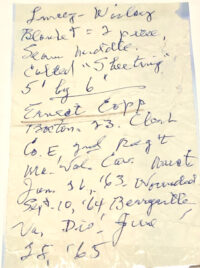 Blanket = 2 piece,
Seam middle.
Called "Sheeting"
5' by 6'
Ernest Copp
Co. E 2nd Reg't
Me. Vol. Cav. Must
Jan. 16, '63. Wounded
Sept. 10, '64 Berryville
Va, Dis. June
28, '65